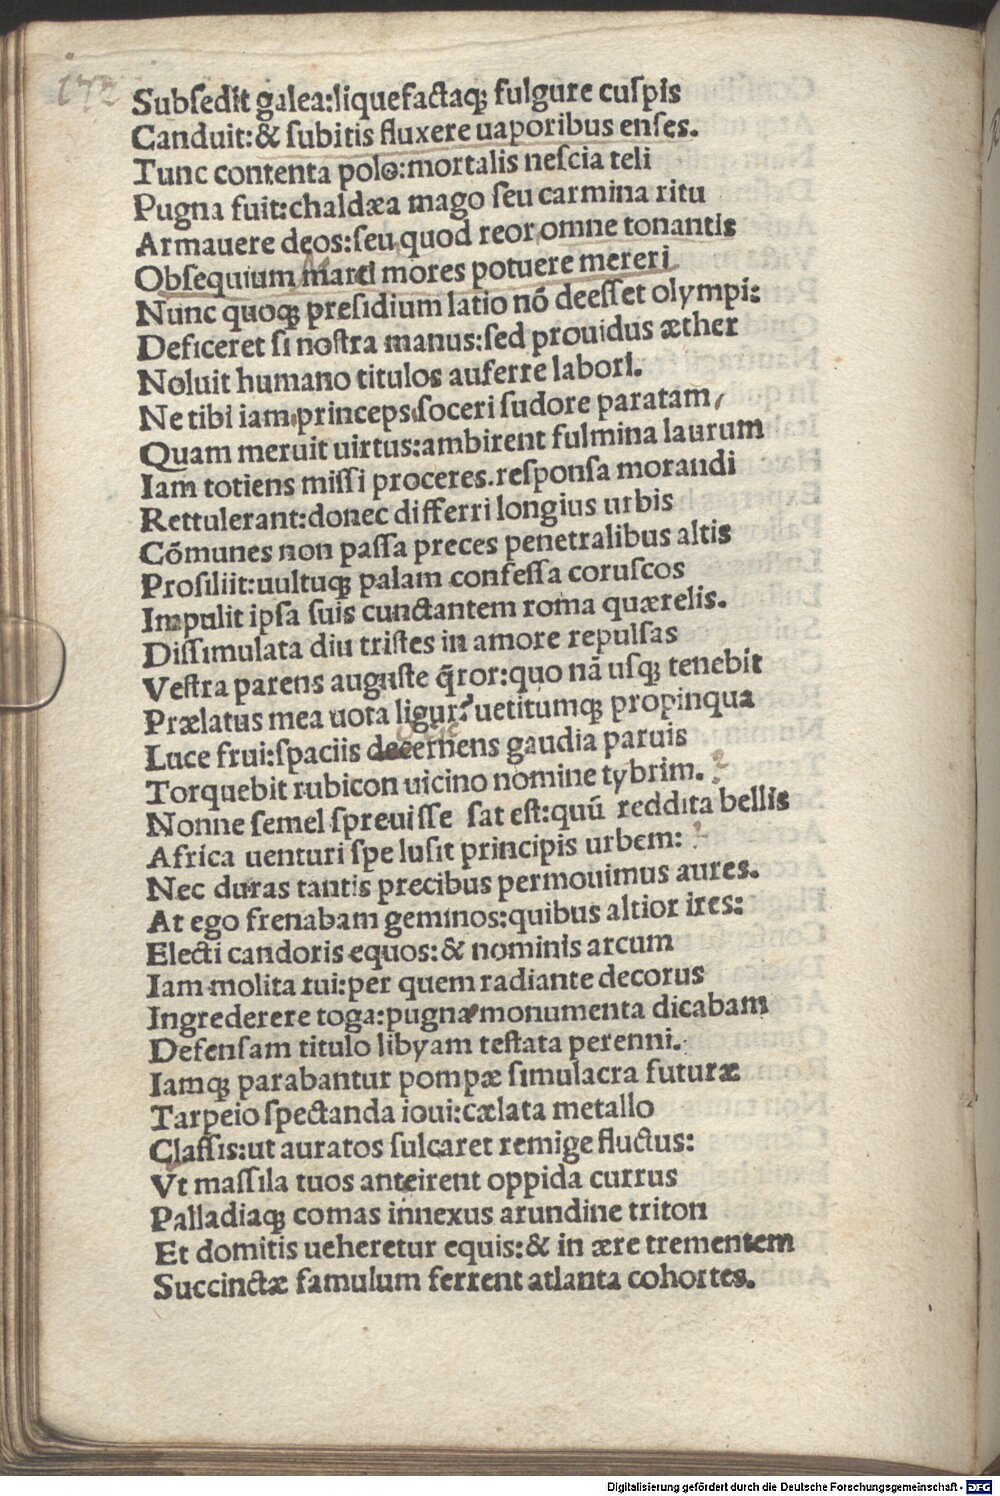 172
Subsedit galea:liquefactaq; fulgure cuspis
Canduit:& subitis fluxere uaporibus enses.
Tunc contenta polo:mortalis nescia teli
Pugna fuit:chaldæa mago seu carmina ritu
Armauere deos:seu quod reor omne tonantis
Obsequium marci mores potuere mereri
Nunc quoq; presidium latio nō deesset olympi:
Deficeret si nostra manus:sed prouidus æther
Noluit humano titulos auferre labori.
Ne tibi iam princeps soceri sudore paratam,
Quam meruit uirtus:ambirent fulmina laurum
Iam totiens missi proceres.responsa morandi
Rettulerant:donec differri longius urbis
Cōmunes non passa preces penetralibus altis
Prosiliit:uultuq; palam confessa coruscos
Impulit ipsa suis cunctantem roma quærelis.
Dissimulata diu tristes in amore repulsas
Vestra parens auguste q̄ror:quo nā usq; tenebit
Prælatus mea uota ligur? uetitumq; propinqua
Luce frui:spaciis decernens gaudia paruis
Torquebit rubicon uicino nomine tybrim. ?
Nonne semel spreuisse sat est:quū reddita bellis
Africa uenturi spe lusit principis urbem: ?
Nec duras tantis precibus permouimus aures.
At ego frenabam geminos:quibus altior ires:
Electi candoris equos:& nominis arcum
Iam molita tui:per quem radiante decorus
Ingrederere toga:pugnæ monumenta dicabam
Defensam titulo libyam testata perenni.
Iamq; parabantur pompæ simulacra futuræ
Tarpeio spectanda ioui:cælata metallo
Classis:ut auratos sulcaret remige fluctus:
Vt massila tuos anteirent oppida currus
Palladiaq; comas innexus arundine triton
Et domitis ueheretur equis:& in ære trementem
Succinctæ famulum ferrent atlanta cohortes.
Digitalisierung gefördert durch die Deutsche Forschungsgemeinschaft - DFG